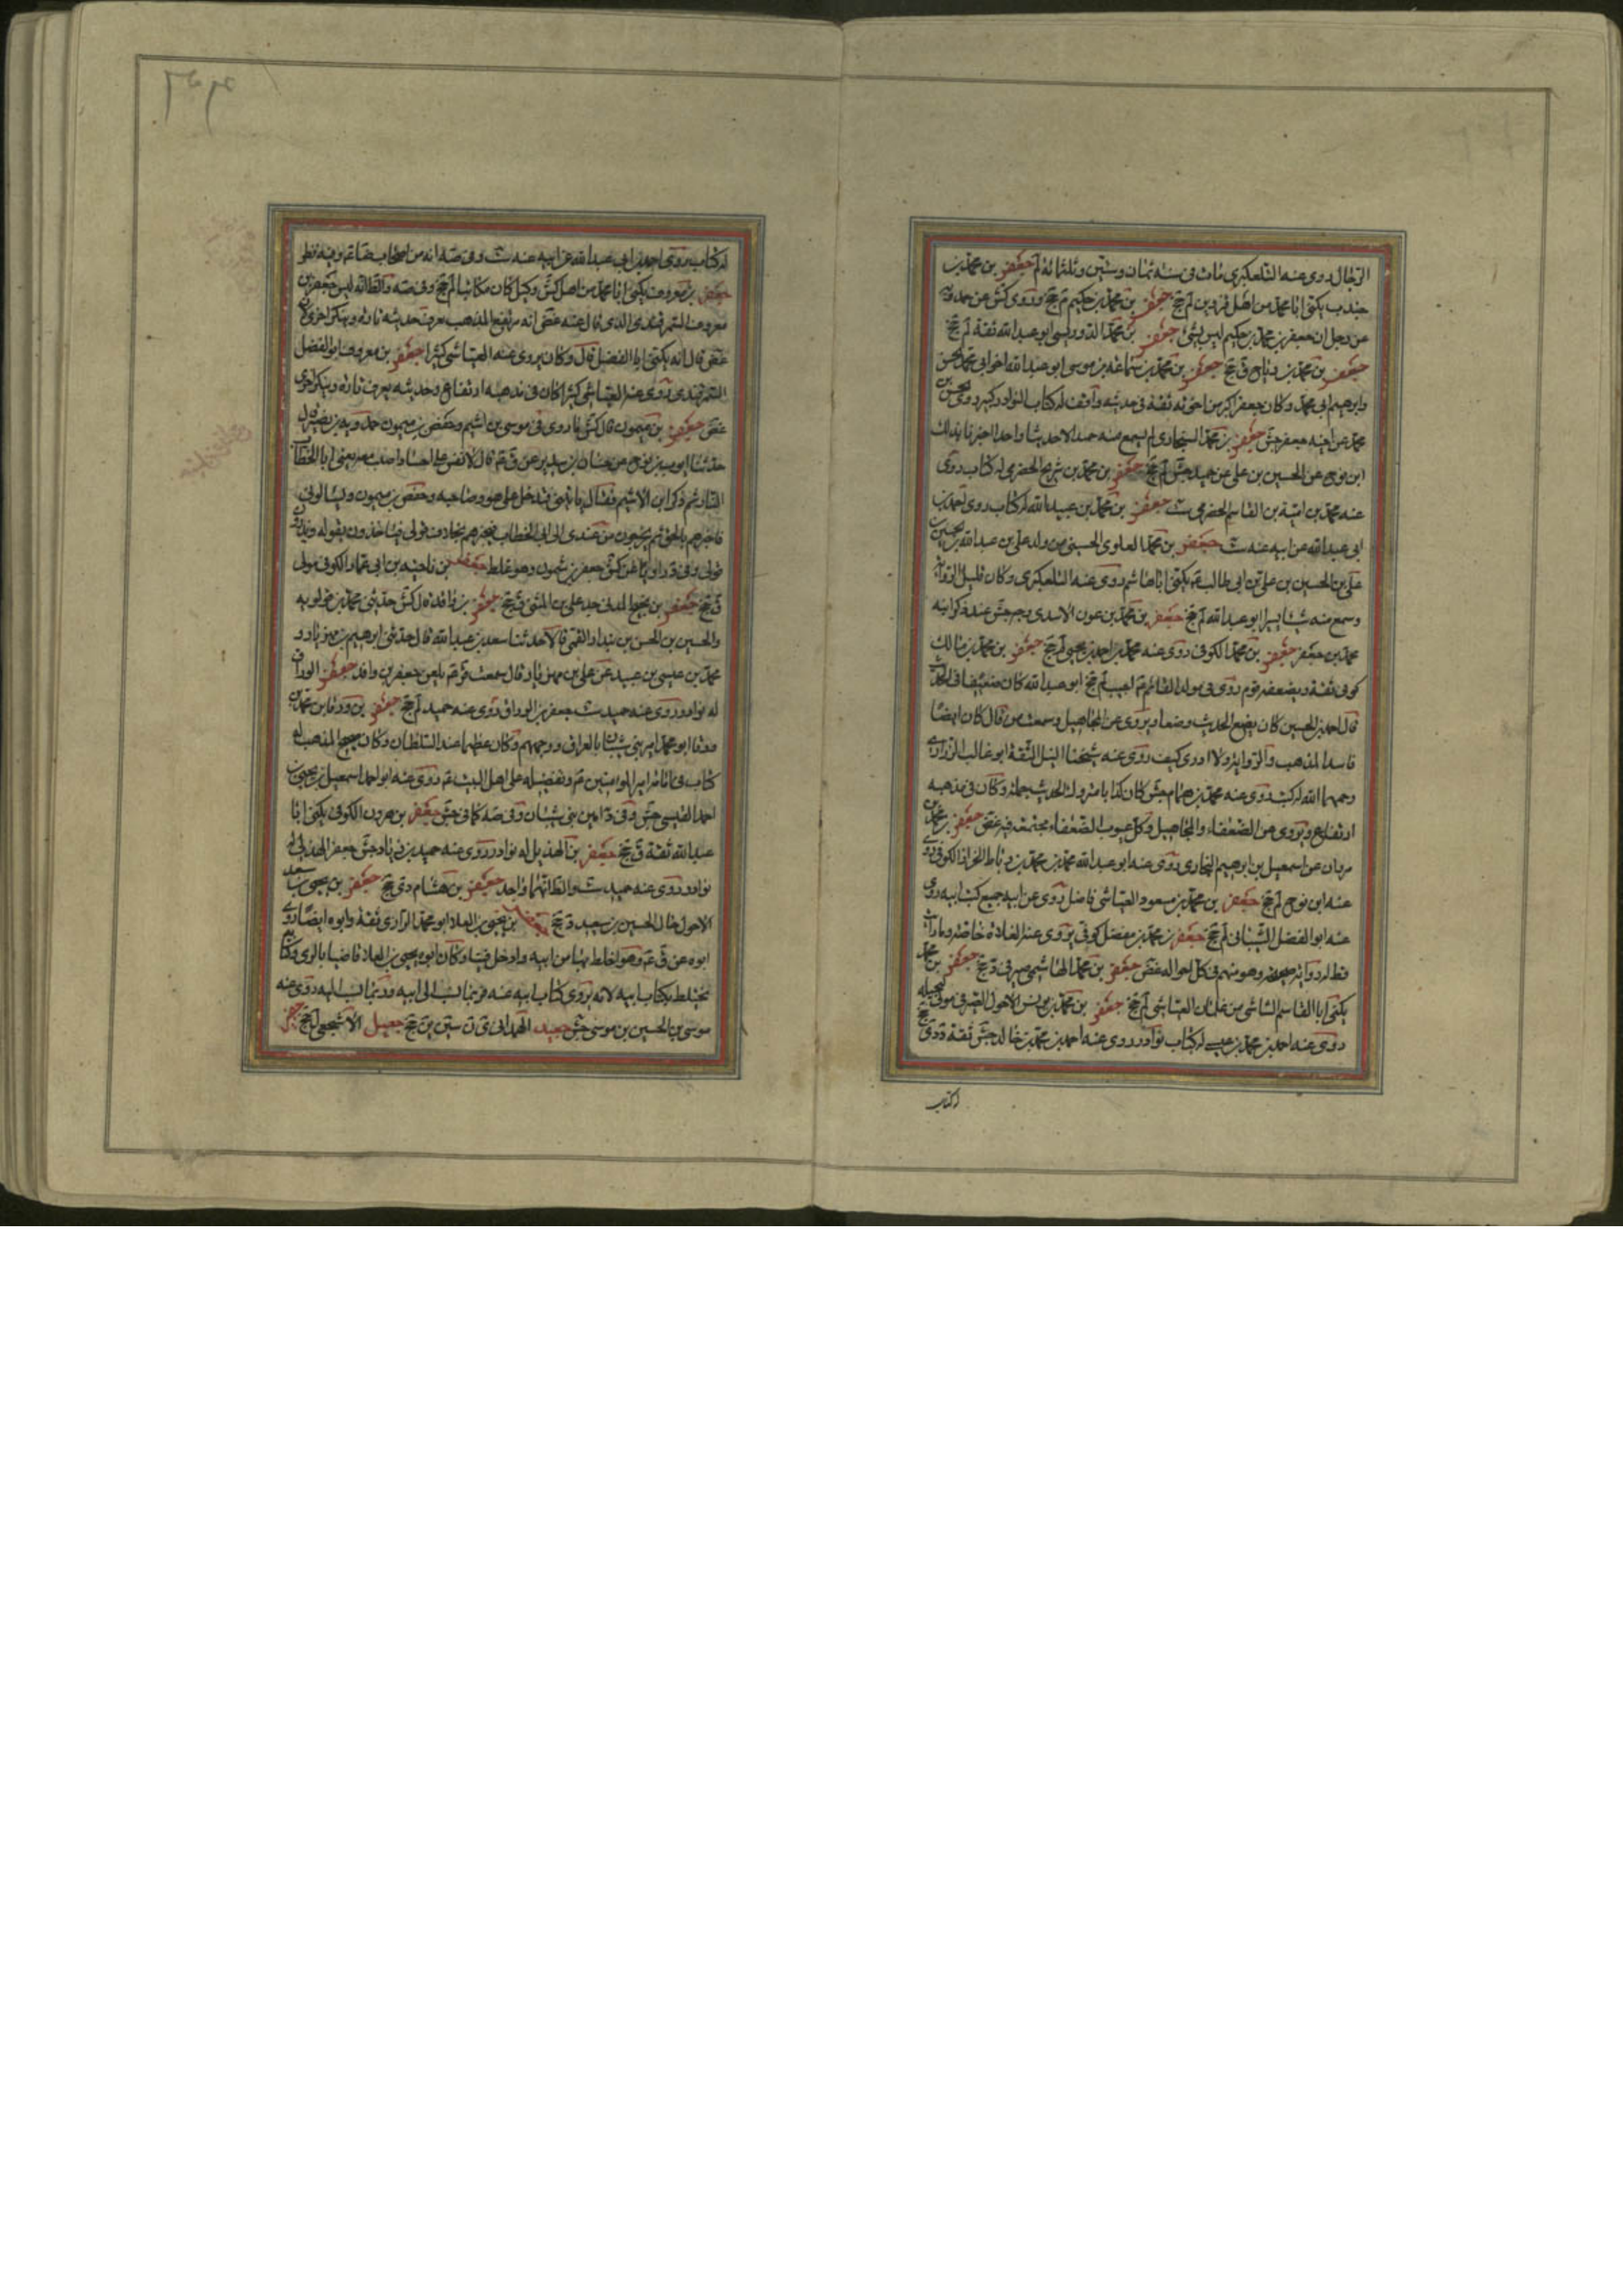 الرجال روى عنه التلعكبرى مات فى سنة ثمان وستين وثلثمائة لم جعفر بن محمد بن
جندب يكنى ابا محمد من اهل قزوين لم جخ جعفر بن محمد بن حكيم م جخ وروى كش عن حمدويه
عن رجل ان جعفر بن محمد بن حكيم ليس بشئ جعفر بن محمد الدوريستى ابو عبد الله ثقة لم جخ
جعفر بن محمد بن رباح ق جخ جعفر بن محمد بن سماعة بن موسى ابو عبد الله اخو ابى محمد الحسن
وابرهيم ابنى محمد وكان جعفر اكبر من اخوته ثقة فى حديثه واقف له كتاب النوادر كبير روى الحسن بن
محمد عن اخيه جعفر جش جعفر بن محمد السنجارى لم يسمع منه حميد الا حديثا واحدا اخبرنا بذلك
ابن نوح عن الحسين بن على عن حميد جش لم جخ جعفر بن محمد بن شريح الحضرمى له كتاب روى
عنه محمد بن امية بن القاسم الحضرمى ست جعفر بن محمد بن عبيد الله له كتاب روى احمد بن
ابى عبد الله عن ابيه عنه ست جعفر بن محمد العلوى الحسينى من ولد على بن عبد الله بن الحسين بن
على بن الحسين بن على بن ابى طالب ع يكنى ابا هاشم روى عنه التلعكبرى وكان قليل الرواية
وسمع منه شيئا يسيرا ابو عبد الله لم جخ جعفر بن محمد بن عون الاسدى وجه جش عند ذكر ابنه
محمد بن جعفر جعفر بن محمد الكوفى روى عنه محمد بن احمد بن يحيى لم جخ جعفر بن محمد بن مالك
كوفى ثقة ويضعفه قوم روى فى مولد القائم ع اعاجيب لم جخ ابو عبد الله كان ضعيفا فى الحديث
قال احمد بن الحسين كان يضع الحديث وضعا ويروى عن المجاهيل وسمعت من قال كان ايضا
فاسد المذهب والرواية ولا ادرى كيف روى عنه شيخنا النبيل الثقة ابو غالب الزرارى
رحمهما الله له كتب روى عنه محمد بن همام جش كان كذابا متروك الحديث جملة وكان فى مذهبه
ارتفاع ويروى عن الضعفاء والمجاهيل وكل عيوب الضعفاء مجتمعة فيه غض جعفر بن محمد بن
مروان عن اسمعيل بن ابرهيم روى عنه ابو عبد الله محمد بن محمد بن رباط الخزاز الكوفى روى
عنه ابن نوح لم جخ جعفر بن محمد بن مسعود العياشى فاضل روى عن ابيه جميع كتب ابيه روى
عنه ابو الفضل الشيبانى لم جخ جعفر بن محمد بن مفضل كوفى يروى عنه الغلاة خاصة وما رايت
قط له رواية صحيحة وهو متهم فى كل احواله غض جعفر بن محمد الهاشمى صيرفى د جخ جعفر بن محمد
يكنى ابا القاسم الشاشى من غلمان العياشى لم جخ جعفر بن محمد بن يونس الاحول الصيرفى مولى بجيلة
روى عنه احمد بن محمد بن عيسى له كتاب نوادر روى عنه احمد بن محمد بن خالد جش ثقة د دى جخ
له كتاب
له كتاب روى احمد بن ابى عبد الله عن ابيه عنه ست وفى صه انه من اصحاب ضا ع وفيه نظر
جعفر بن معروف يكنى ابا محمد من اهل كش وكيل كان مكاتبا لم جخ وفى صه والظاهر انه ليس جعفر بن
معروف السمرقندى الذى قال عنه غض انه مرتفع المذهب يعرف حديثه تارة وينكر اخرى لان
غض قال انه يكنى ابا الفضل قال وكان يروى عنه العياشى كثيرا جعفر بن معروف ابو الفضل
السمرقندى روى عنه العياشى كثيرا كان فى مذهبه ارتفاع وحديثه يعرف تارة وينكر اخرى
غض جعفر بن ميمون قال كش ما روى فى موسى بن اشيم وحفص بن ميمون حمدويه بن نصير قال
حدثنا ايوب بن نوح عن حنان بن سدير عن ق ع قال انى لانفس على اجساد اصيبت معه يعنى ابا الخطاب
النار ثم ذكر ابن الاشيم فقال كان ياتينى فيدخل على هو وصاحبه وحفص بن ميمون ويسالونى
فاخبرهم بالحق ثم يخرجون من عندى الى ابى الخطاب فيخبرهم بخلاف قولى فياخذون بقوله ويذرون
قولى جعفر بن ناجية بن ابى عمار الكوفى مولى
ق جخ جعفر بن نجيح المدنى جد على بن المدينى ق جخ جعفر بن واقد قال كش حدثنى محمد بن قولويه
والحسين بن الحسن بن بندار القمى قالا حدثنا سعد بن عبد الله قال حدثنى ابرهيم بن مهزيار و
محمد بن عيسى بن عبيد عن على بن مهزيار قال سمعت ج ع يلعن جعفر بن واقد جعفر الوراق
له نوادر روى عنه حميد ست جعفر بن الوراق روى عنه حميد لم جخ جعفر بن ورقا بن محمد بن
ورقا ابو محمد امير بنى شيبان بالعراق ووجههم وكان عظيما عند السلطان وكان صحيح المذهب له
كتاب فى امامة امير المؤمنين ع وتفضيله على اهل البيت ع روى عنه ابو احمد اسمعيل بن يحيى بن
احمد العبسى جش وفى د امير بنى شيبان وفى صه كما فى جش جعفر بن هرون الكوفى يكنى ابا
عبد الله ثقة ق جخ جعفر بن الهذيل له نوادر روى عنه حميد بن زياد جش جعفر الهذلى له
نوادر روى عنه حميد ست والظاهر انهما واحد جعفر بن هشام دى جخ جعفر بن يحيى بن سعد
الاحول خال الحسين بن سعيد د جخ جعفر بن يحيى بن العلا ابو محمد الرازى ثقة وابوه ايضا روى
ابوه عن ق ع وهو اخلط بنا من ابيه وادخل فينا وكان ابوه يحيى بن العلا قاضيا بالرى وكتابه
يختلط بكتاب ابيه لانه يروى كتاب ابيه عنه فربما نسب الى ابيه وربما نسب اليه روى عنه
موسى بن الحسين بن موسى جش جعيد الهمدانى ى ن سين ين جخ جعيل الاشجعى ل جخ جفير